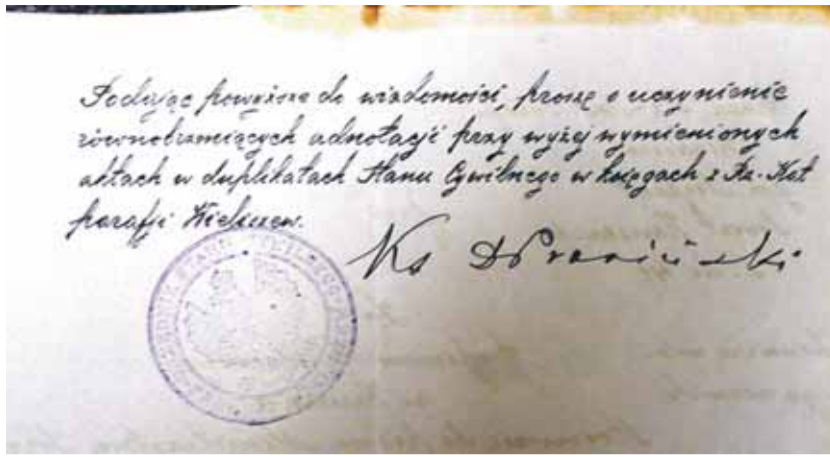 Podając powyższe do wiadomości, proszę o uczynienie
równobrzmiących adnotacji przy wyżej wymienionych
aktach w duplikatach Stanu Cywilnego w księgach z Rz.-Kat
parafji Wieliczew.
Ks
STANU CYWILNEGO